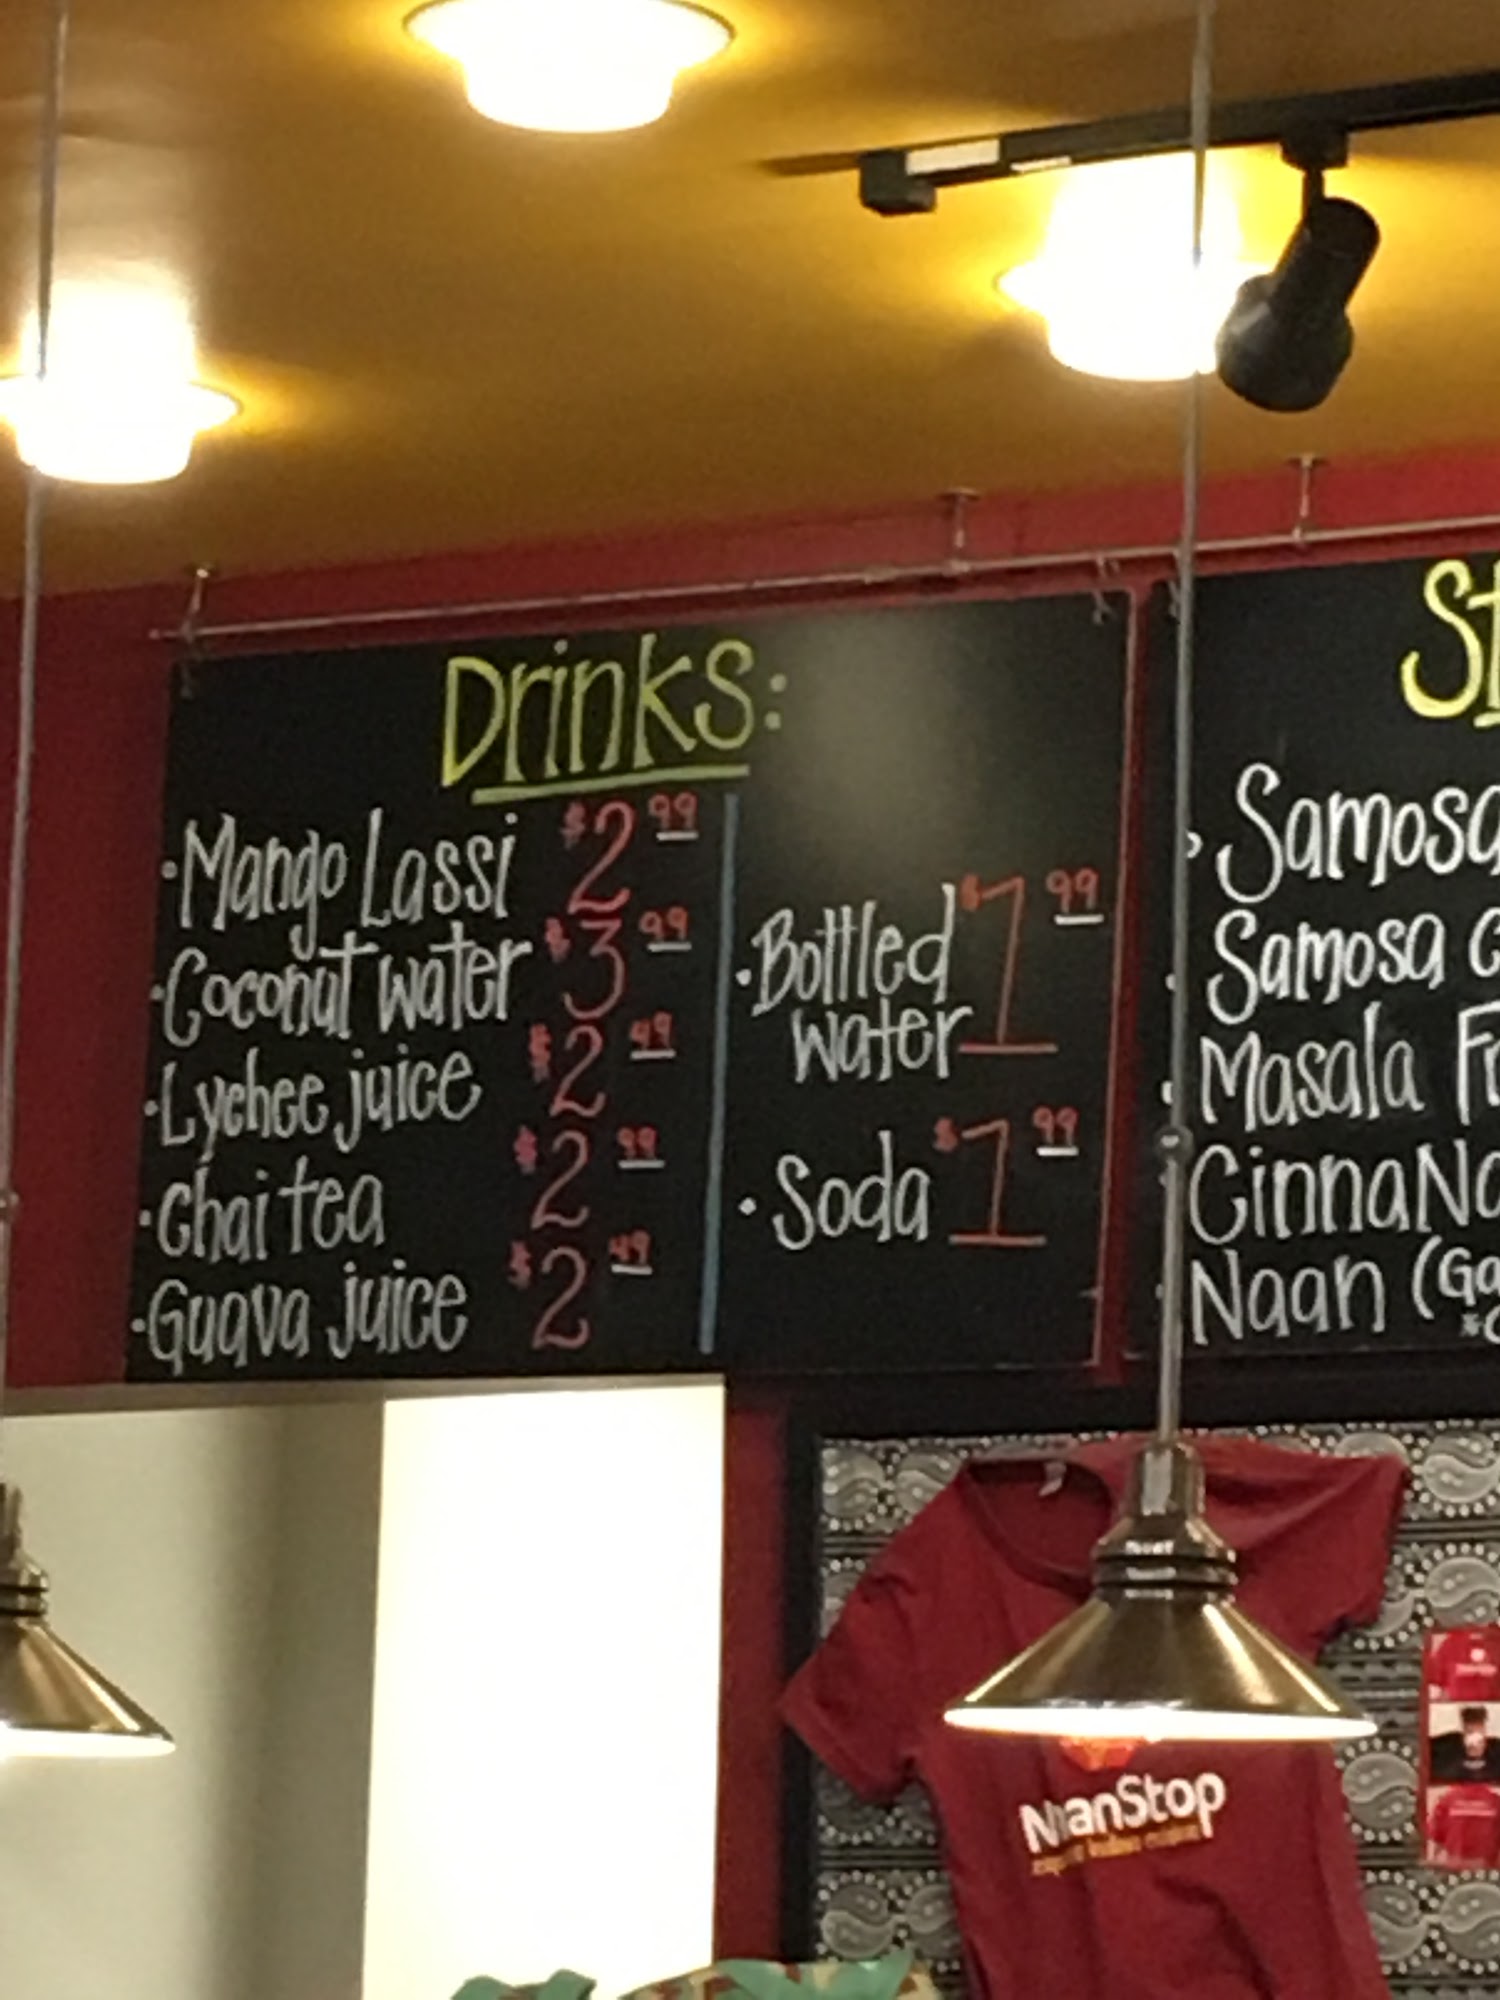 Drinks:
· Mango Lassi $2 99
· Coconut water $3 99
· Lychee juice $2 49
· Chai tea $2 99
· Guava juice $2 49
· Bottled
water $1 99
· Soda $1 99
St
· Samosa
· Samosa C
· Masala Fr
CinnaNa
Naan (Ga
NaanStop